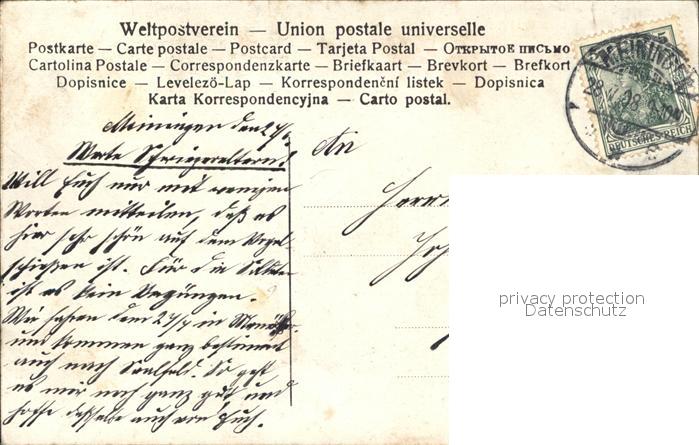 Weltpostverein — Union postale universelle
Postkarte — Carte postale — Postcard — Tarjeta Postal — Открытое письмо
Cartolina Postale — Correspondenzkarte — Briefkaart — Brevkort — Brefkort
Dopisnice — Levelező-Lap — Korrespondenční listek — Dopisnica
Karta Korrespondencyjna — Carto postal.
MEININGEN
DEUTSCHES REICH
Meiningen den
Werte Schwiegereltern!
Will Euch nur mit wenigen
Worten mitteilen, daß es
hier sehr schön auf dem Vogel-
schießen ist. Für die
ist es kein Vergnügen.
Wir fahren den in
und kommen ganz bestimmt
auch nach Saalfeld. So geht
es mir noch ganz gut und
hoffe dasselbe auch von Euch.
An
Herrn
privacy protection
Datenschutz